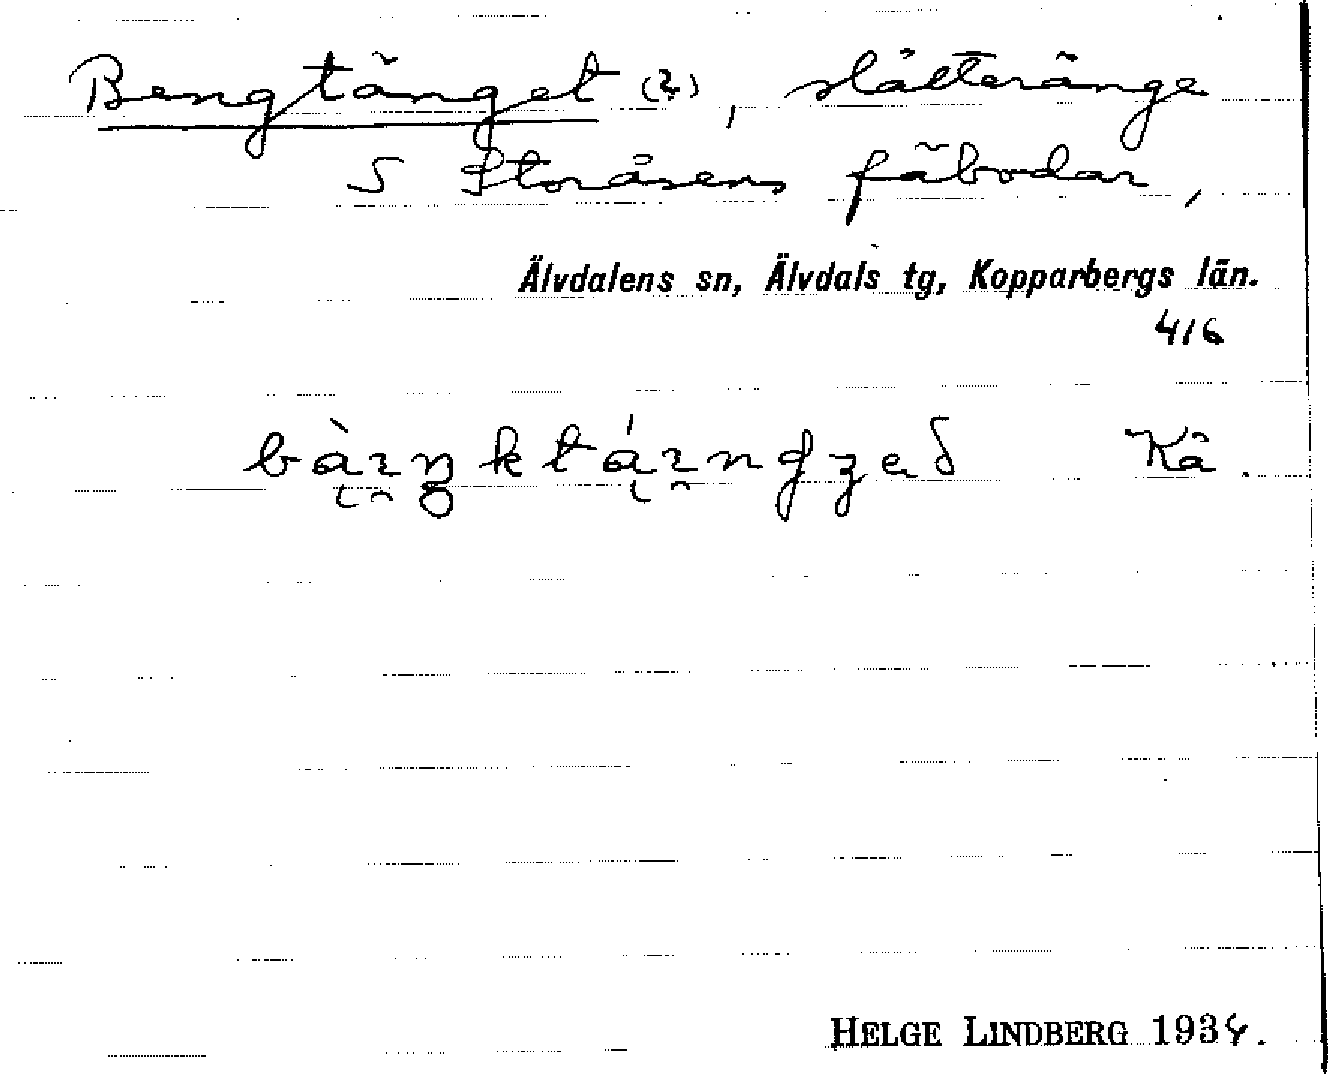 Bengtänget (2), slåtteränge
S Storåsens fäbodar,
Älvdalens sn, Älvdals tg, Kopparbergs län.
416
Kå.
HELGE LINDBERG 1934.